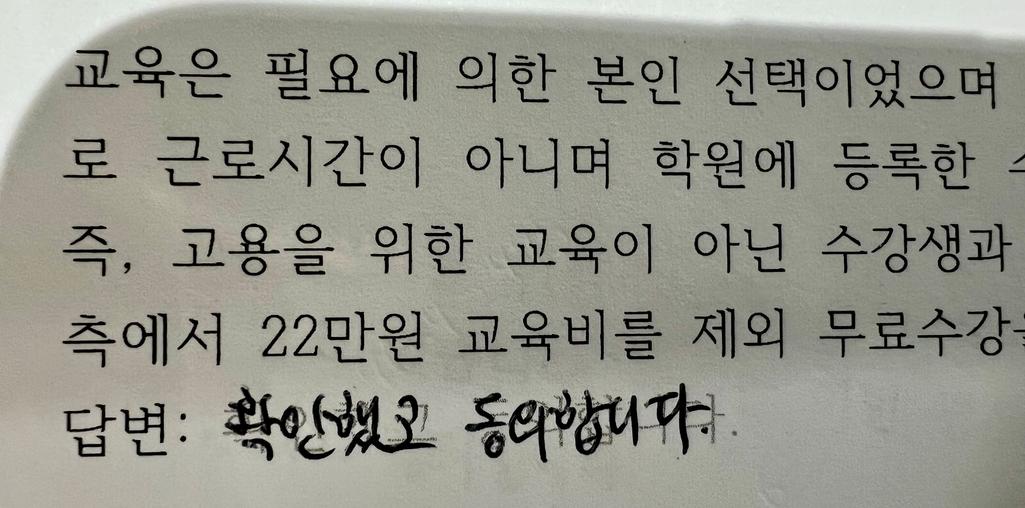 교육은 필요에 의한 본인 선택이었으며
로 근로시간이 아니며 학원에 등록한
즉, 고용을 위한 교육이 아닌 수강생과
측에서 22만원 교육비를 제외 무료수강
답변: 확인했고 동의합니다.